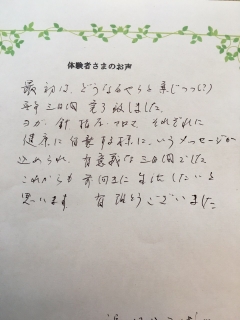 体験者さまのお声
最初は、どうなるやらと案じつつ(?)
無事三日間完了致しました。
ヨガ、針、指圧、アロマ それぞれに
健康に 自発する様に、いうメッセージが
込められ、有意義な三日間でした
これからも 前向きに 生活したいと
思います。 有難うございました